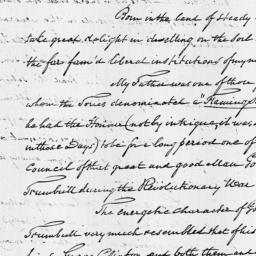 Born in the land of steady
take great delight in dwelling on the soil
the far fam'd liberal institutions of my na
My Father was one of those
whom the Tories denominated a "Flaming
he had the Honour (not by intrigue, it was
in those Days) to be for a long period one of
Council of that great and good Man Go
Trumbull during the Revolutionary War
The energetic character of Go
Trumbull very much resembled that of his
Clinton and both them and